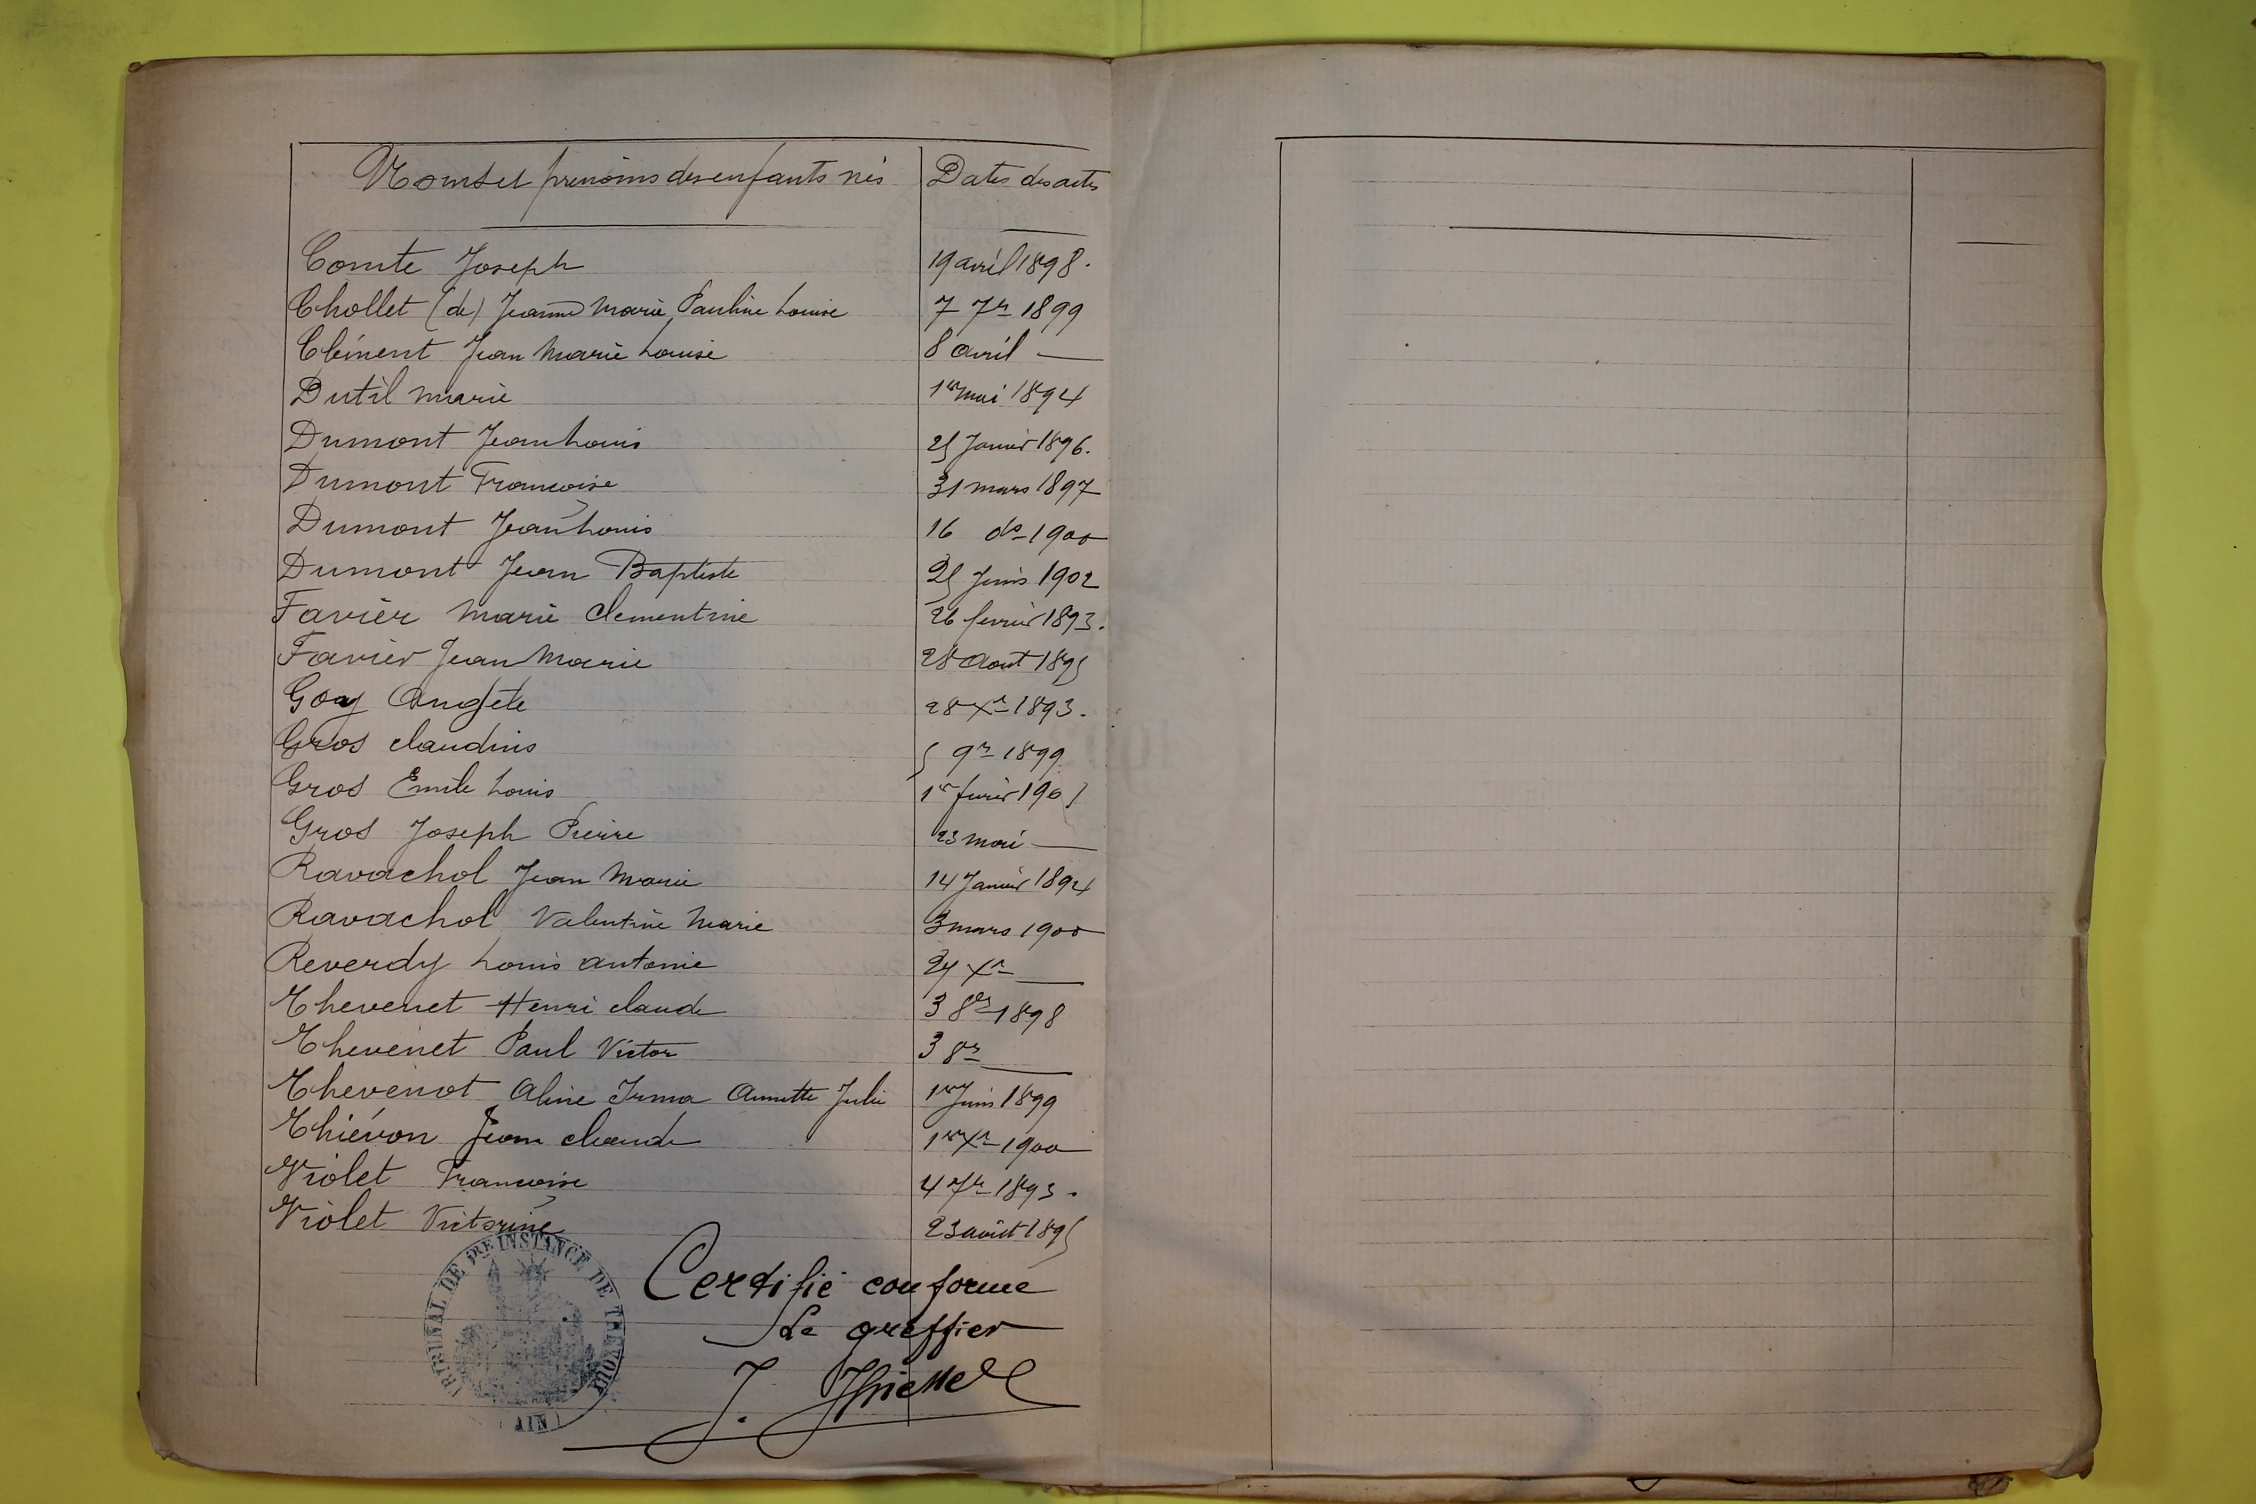 Noms et prenoms des enfants nés Dates des actes
Comte Joseph 19 avril 1898.
Chollet (de) Jeanne Marie Pauline Louise 7 7re 1899
Clément Jean Marie Louise 8 avril —
Dutil Marie 1er mai 1894
Dumont Jean Louis 25 Janvier 1896.
Dumont Francoise 31 mars 1897
Dumont Jean Louis 16 do 1900
Dumont Jean Baptiste 25 Juin 1902
Favier Marie Clementine 26 fevrier 1893.
Favier Jean Marie 28 Aout 1895
Goy Angèle 28 Xre 1893.
Gros Claudius 5 9re 1899
Gros Emile Louis 1er fevrier 1901
Gros Joseph Pierre 23 mai —
Ravachol Jean Marie 14 Janvier 1894
Ravachol Valentine Marie 3 mars 1900
Reverdy Louis Antoine 24 Xre —
Thevenet Henri Claude 3 8re 1898
Thevenet Paul Victor 3 8re —
Thevenot Aline Irma Annette Julie 1er Juin 1899
Thiévon Jean Claude 1er Xre 1900
Violet Francoise 4 7re 1893.
Violet Victorine 23 août 1895
Certifié conforme
Le greffier
J.
TRIBUNAL DE 1RE INSTANCE DE TREVOUX
(AIN)